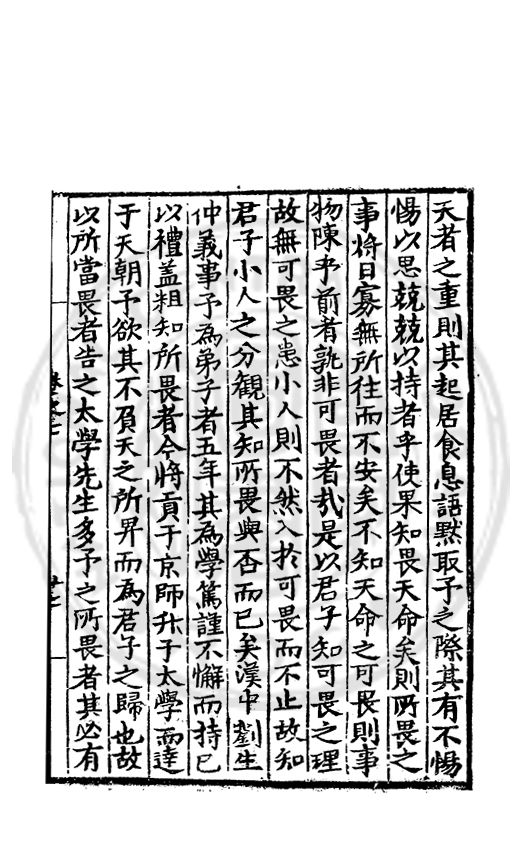 天者之重則其起居食息語默取予之際其有不惕
惕以思兢兢以持者乎使果知畏天命矣則所畏之
事將日寡無所往而不安矣不知天命之可畏則事
物陳乎前者孰非可畏者哉是以君子知可畏之理
故無可畏之患小人則不然入於可畏而不止故知
君子小人之分觀其知所畏與否而已矣漢中劉生
仲義事予為弟子者五年其為學篤謹不懈而持已
以禮蓋粗知所畏者今將貢于京師升于太學而達
于天朝予欲其不負天之所畀而為君子之歸也故
以所當畏者告之太學先生多予之所畏者其必有